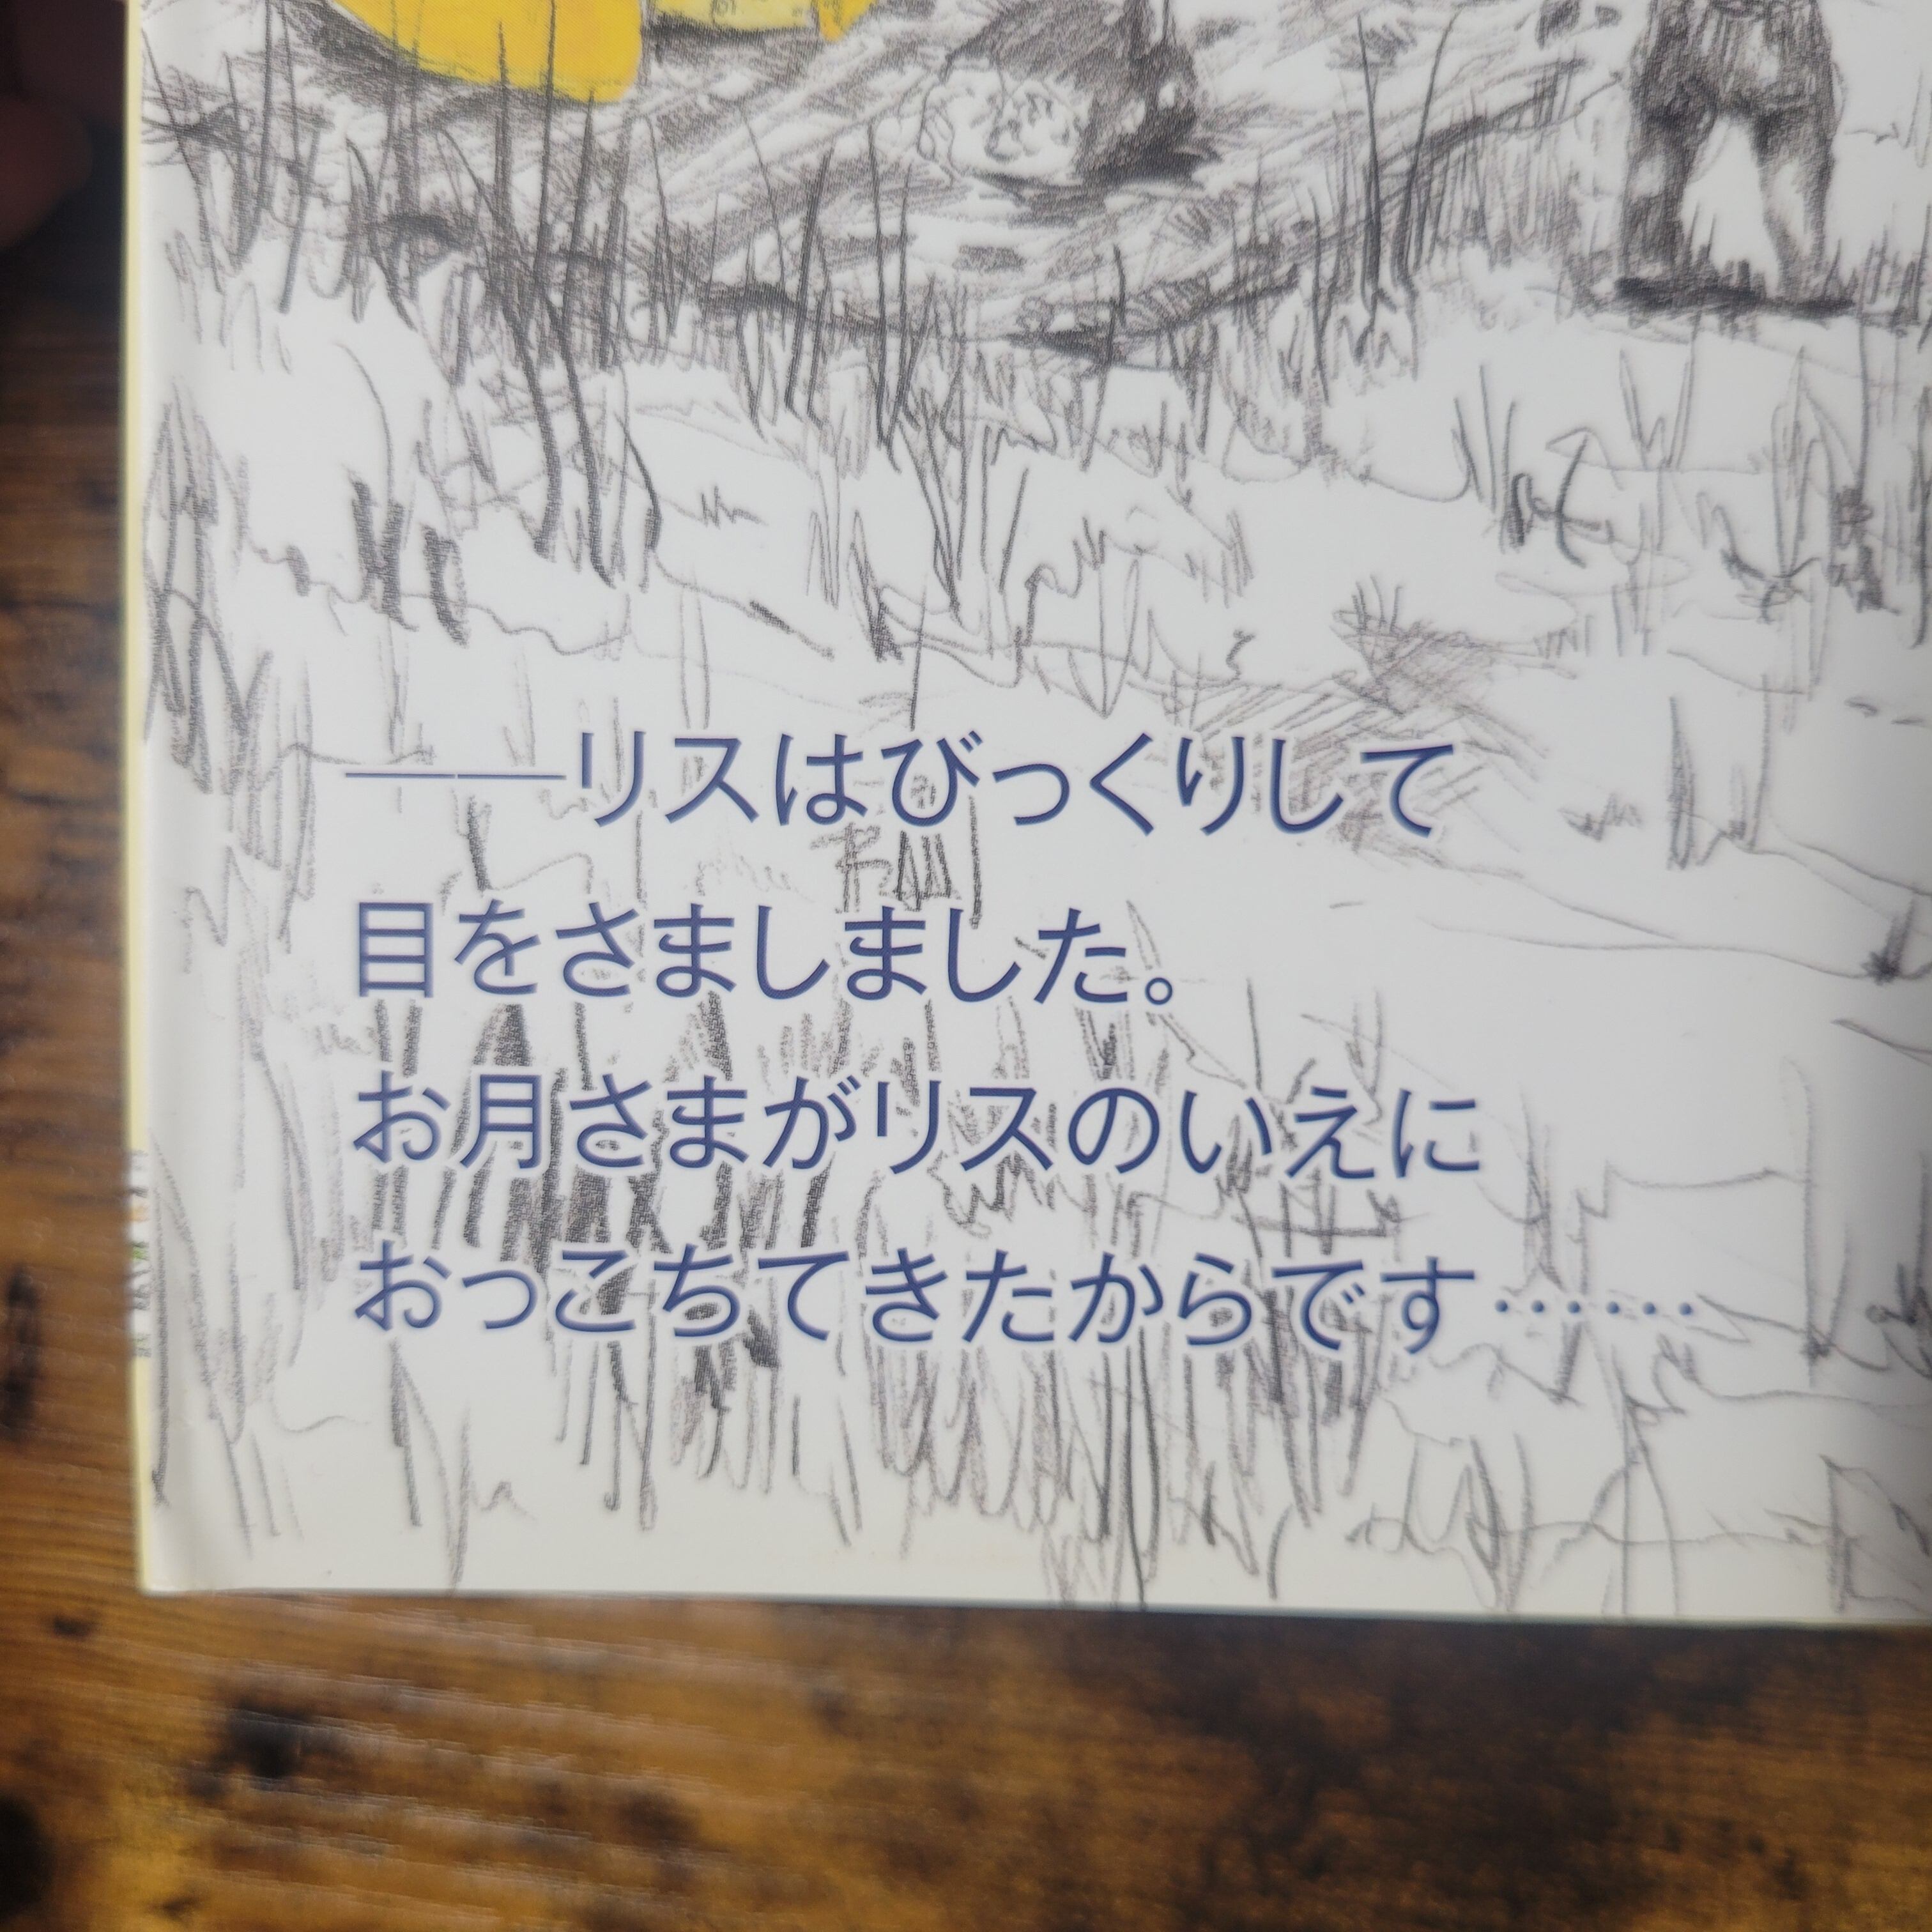 ――リスはびっくりして
目をさましました。
お月さまがリスのいえに
おっこちてきたからです……